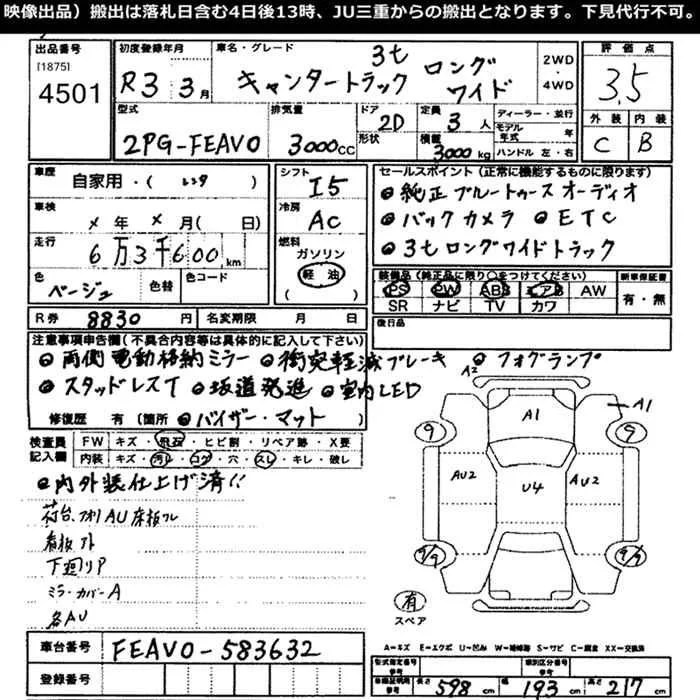 映像出品）搬出は落札日含む4日後13時、JU三重からの搬出となります。下見代行不可。
出品番号
[1875]
4501
初度登録年月
R3 3月
車名・グレード
3t ロング
キャンタートラック ワイド
2WD
・
4WD
評価点
3.5
外装 内装
C B
型式
2PG-FEAV0
排気量
3000cc
ドア
2D
形状
定員
3人
積載
3000kg
ディーラー・並行
モデル年式 年
ハンドル 左・右
車歴
自家用・( レンタ )
車検
メ年 メ月( 日)
走行
6万3千600km
色
ベージュ
色替
色コード
シフト
I5
冷房
AC
燃料
ガソリン
軽油
( )
セールスポイント（正常に機能するものに限ります）
●純正ブルートゥースオーディオ
●バックカメラ ●ETC
●3tロングワイドトラック
装備品（純正品に限り○をつけてください）
PS PW ABS エアB AW
SR ナビ TV カワ
新車保証書
有・無
R券 8830円
名変期限 月 日
後日品
注意事項申告欄（不具合内容等は具体的に記入して下さい）
●両側電動格納ミラー ●衝突軽減ブレーキ ●フォグランプ
●スタッドレスT ●坂道発進 ●室内LED
修復歴 有（箇所 ●バイザー・マット ）
検査員記入欄
FW キズ・飛石・ヒビ割・リペア跡・X要
内装 キズ・汚レ・コゲ・穴・スレ・キレ・破レ
●内外装仕上げ済!!
荷台、アオリAU 床板ワレ
看板アト
下廻りP
ミラ・カバーA
名AU
A2
A1
A1
9
9
AU2
U4
AU2
9/9
9/9
有
スペア
A−キズ E−エクボ U−凹み W−補修跡 S−サビ C−腐食 XX−交換済
車台番号
FEAV0-583632
登録番号
型式指定番号
参考
類別区分番号
参考
車検証明用
参考
長さ 598cm
幅 193cm
高さ 217cm